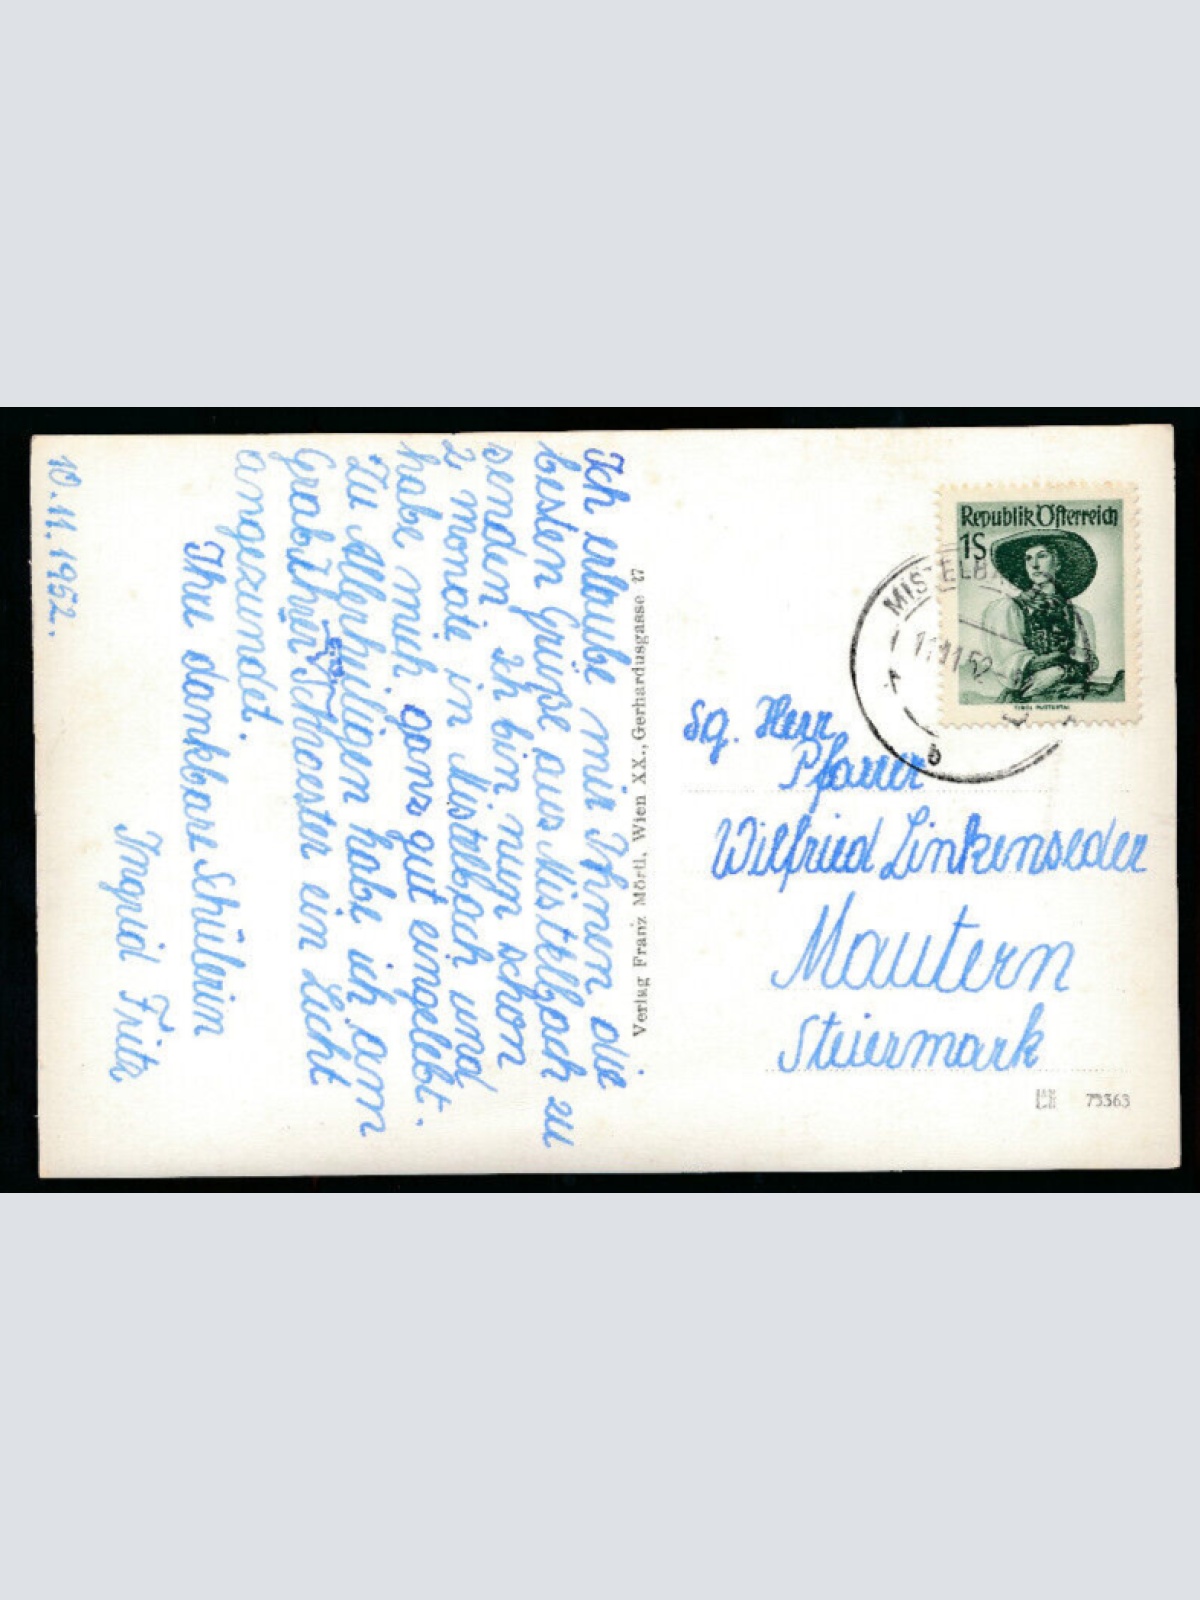 10.11.1952.
Ich erlaube mir Ihnen die
besten Grüße aus Mistelbach zu
senden. Ich bin nun schon
2 Monate in Mistelbach und
habe mich ganz gut eingelebt.
Zu Allerheiligen habe ich am
Grab Ihrer Schwester ein Licht
angezündet.
Ihre dankbare Schülerin
Ingrid Fritz
Verlag Franz Mörtl, Wien XX., Gerhardusgasse 27
Republik Österreich
1S
TIROL PUSTERTAL
MISTELBA
11.11.52
b
Sg. Herr
Pfarrer
Wilfried Linkenseder
Mautern
Steiermark
75363